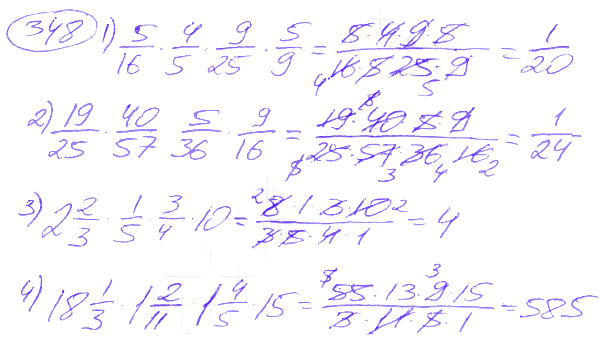 348 1) 5/16 · 4/5 · 9/25 · 5/9 = 5·4·9·5 / 16·5·25·9 = 1/20
2) 19/25 · 40/57 · 5/36 · 9/16 = 19·40·5·9 / 25·57·36·16 = 1/24
3) 2 2/3 · 1/5 · 3/4 · 10 = 8·1·3·10 / 3·5·4·1 = 4
4) 18 1/3 · 1 2/11 · 1 4/5 · 15 = 55·13·9·15 / 3·11·5·1 = 585